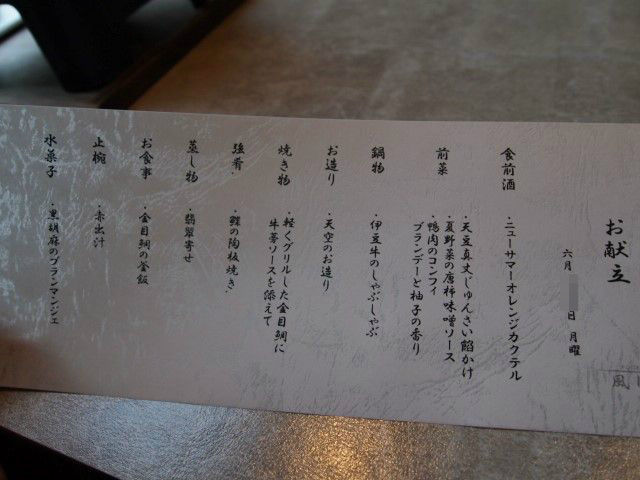 お献立
六月 日 月曜
風
食前酒 ・ニューサマーオレンジカクテル
前菜 ・天豆真丈じゅんさい餡かけ
・夏野菜の唐柿味噌ソース
・鴨肉のコンフィ
ブランデーと柚子の香り
鍋物 ・伊豆牛のしゃぶしゃぶ
お造り ・天空のお造り
焼き物 ・軽くグリルした金目鯛に
牛蒡ソースを添えて
強肴 ・鰹の陶板焼き
蒸し物 ・翡翠寄せ
お食事 ・金目鯛の釜飯
止椀 ・赤出汁
水菓子 ・黒胡麻のブランマンジェ